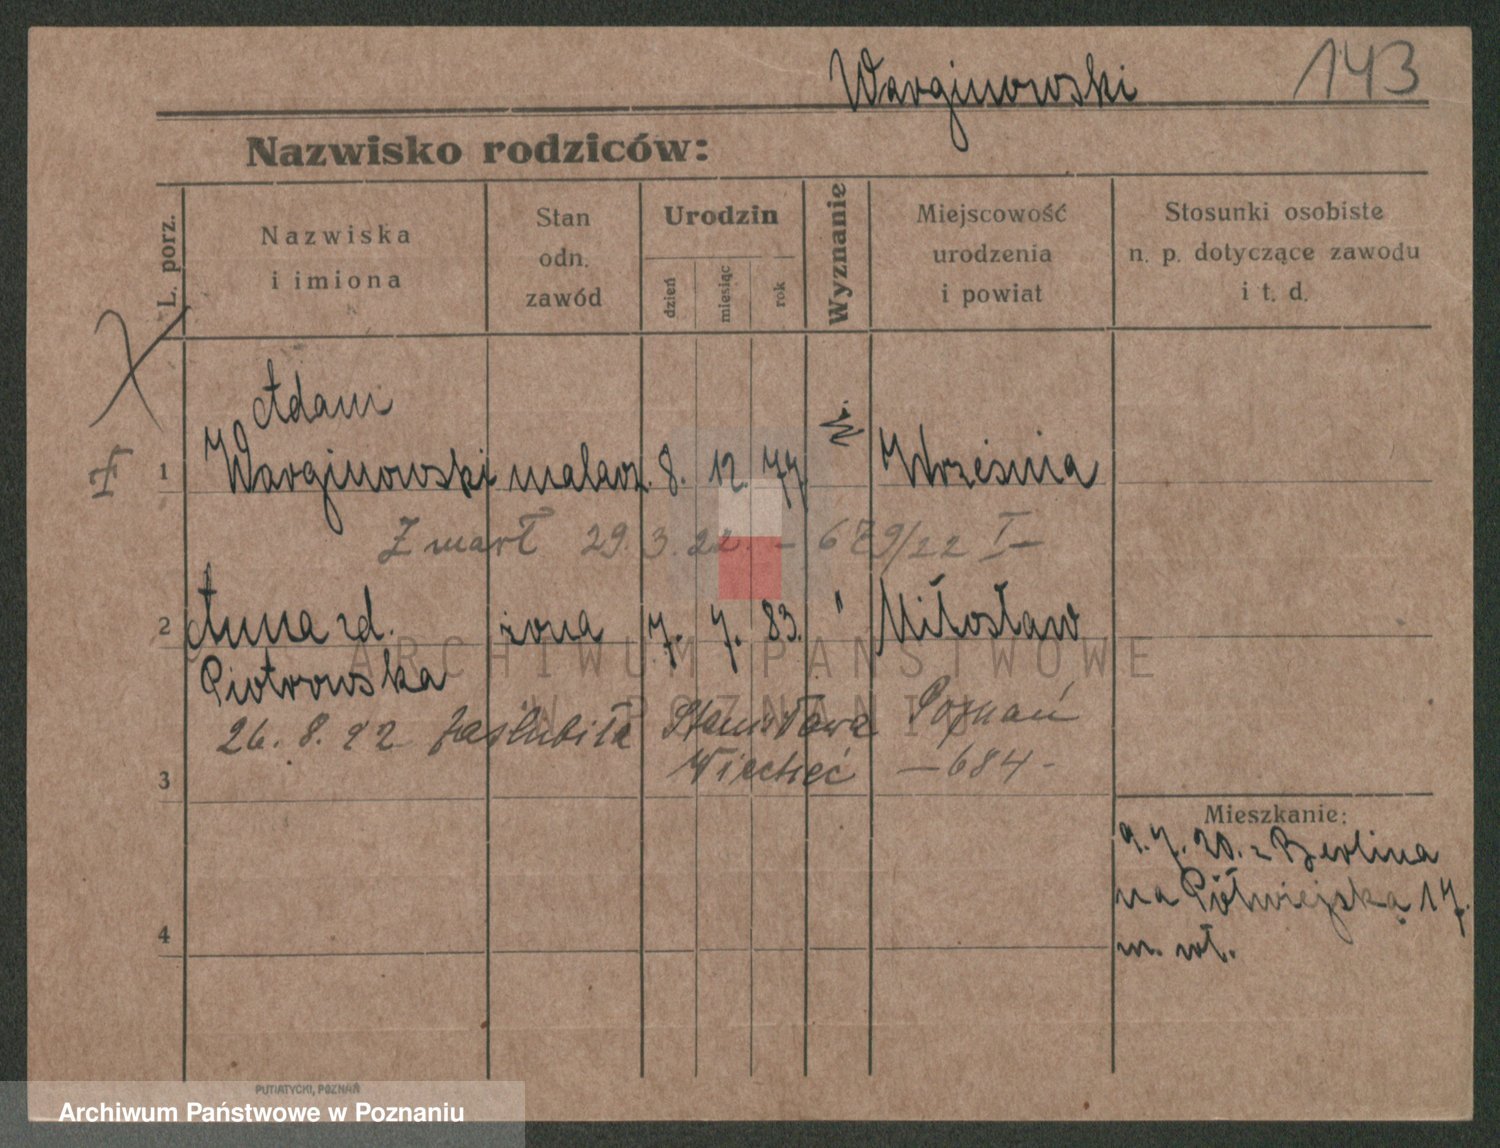 Warginowski 143
Nazwisko rodziców:
L. porz.
Nazwiska
i imiona
Stan
odn.
zawód
Urodzin
dzień
miesiąc
rok
Wyznanie
Miejscowość
urodzenia
i powiat
Stosunki osobiste
n. p. dotyczące zawodu
i t. d.
Adam
1 Warginowski malarz. 8. 12. 77 Września
Zmarł 29.3.22. - 679/22 I-
2 Anna zd. żona 7. 7. 83. " Miłosław
Piotrowska
26. 8. 22 zaślubiła Stanisława Poznań
Wiecheć - 684 -
3
Mieszkanie:
9. 7. 20. z Berlina
na Półwiejską 17.
m. wł.
4
ARCHIWUM PAŃSTWOWE
W POZNANIU
PUTIATYCKI, POZNAŃ
Archiwum Państwowe w Poznaniu